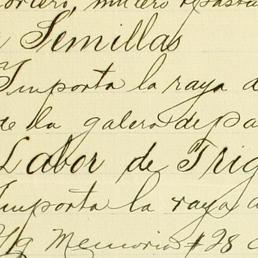 Semillas
Importa la raya d
de la galera de pa
Labor de Trig
Importa la raya d
Memoria #28